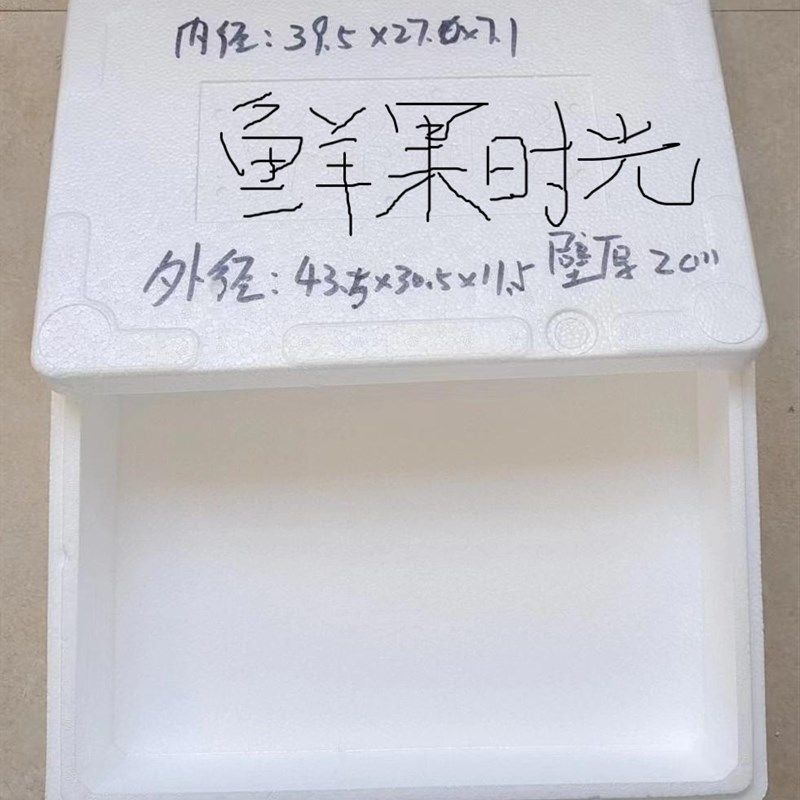 内径：39.5×27.6×7.1
鲜果时光
外径：43.5×30.5×11.5 壁厚2cm